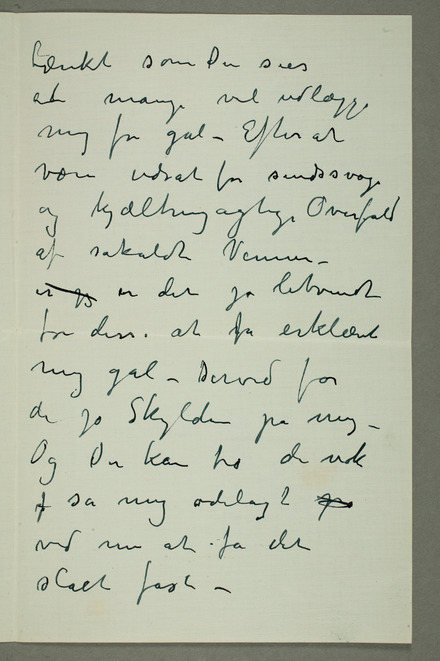 tænkt som Du sies
at mange vil udlægge
mig for gal – Efter at
være udsat for sindssvage
og kjæltringagtige Overfald
af såkaldte Venner –
er jeg er det jo letvindt
for dem at få erklæret
mig gal – Derved får
de jo Skylden på mig –
Og Du kan tro de nok
så mig ødelagt
ved nu at få det
slået fast –